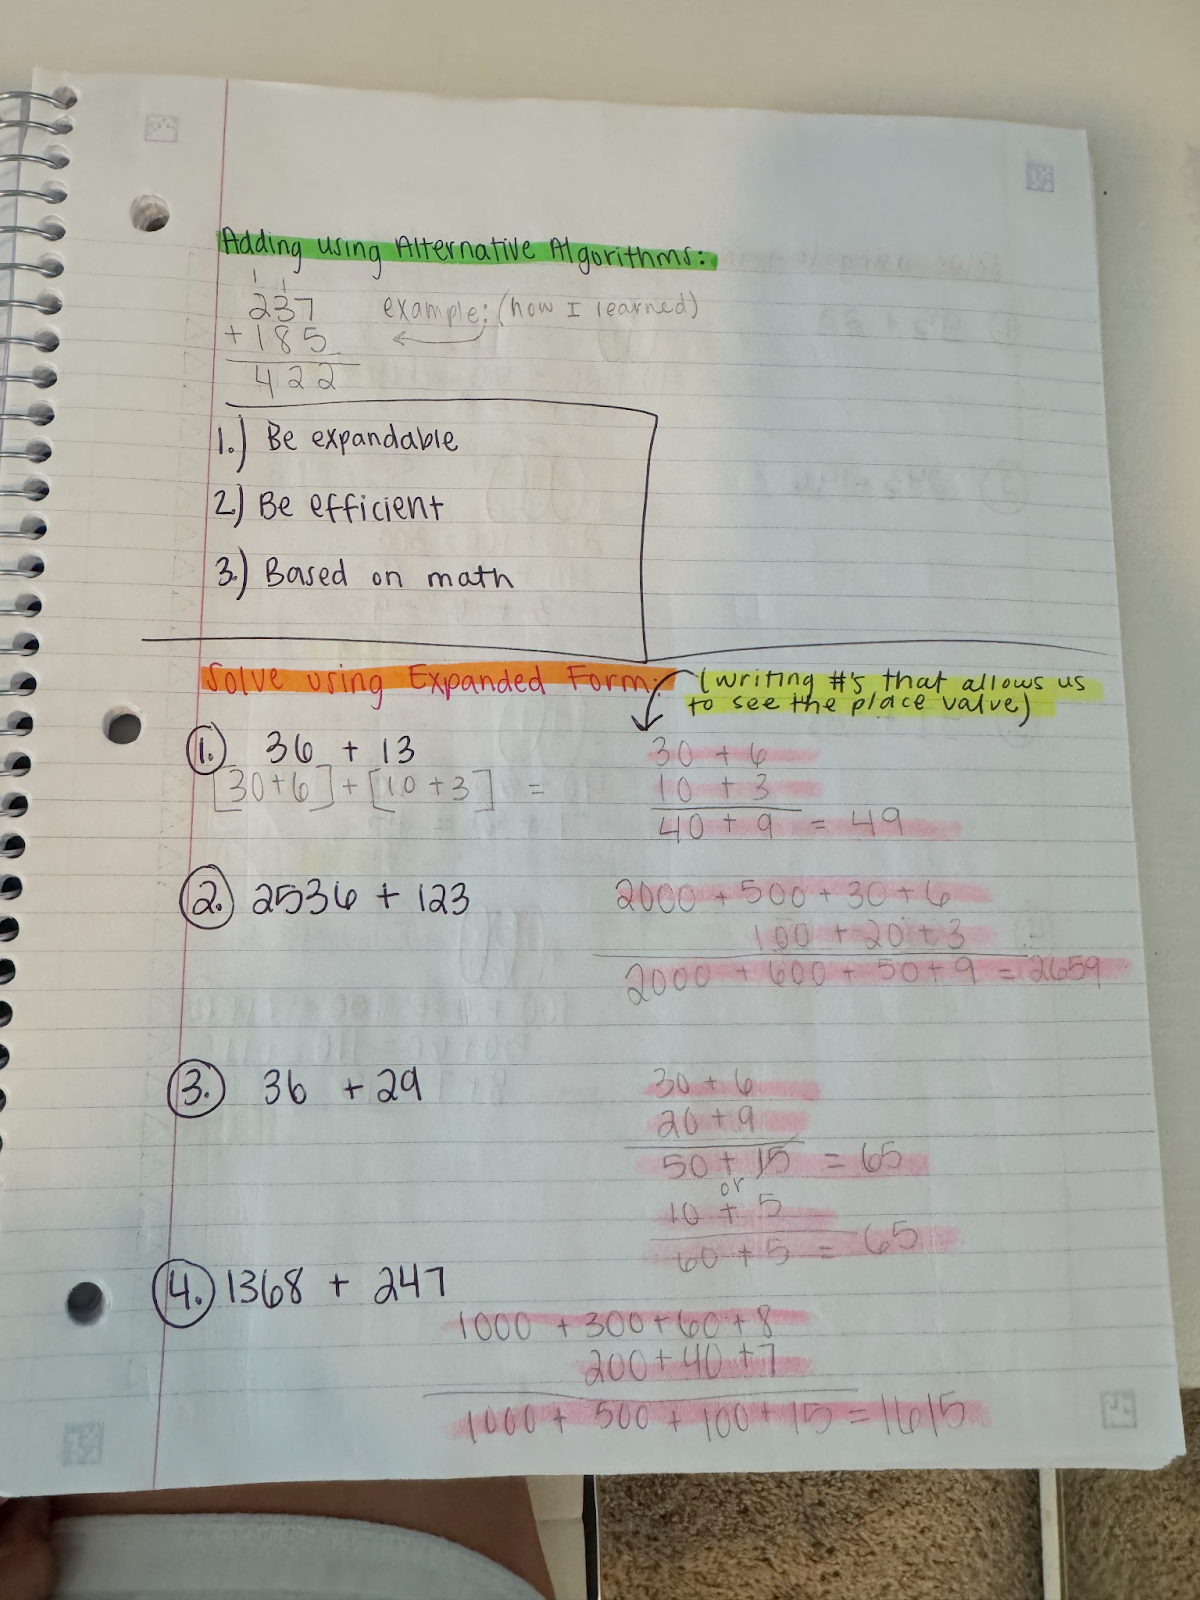 Adding using Alternative Algorithms:
1 1
237
example: (how I learned)
+ 185
422
1.) Be expandable
2.) Be efficient
3.) Based on math
Solve using Expanded Form:
(writing #'s that allows us
to see the place value)
1. 36 + 13
30 + 6
[30+6] + [10 + 3] =
10 + 3
40 + 9 = 49
2. 2536 + 123
2000 + 500 + 30 + 6
100 + 20 + 3
2000 + 600 + 50 + 9 = 2659
3. 36 + 29
30 + 6
20 + 9
50 + 15 = 65
or
10 + 5
60 + 5 = 65
4. 1368 + 247
1000 + 300 + 60 + 8
200 + 40 + 7
1000 + 500 + 100 + 15 = 1615